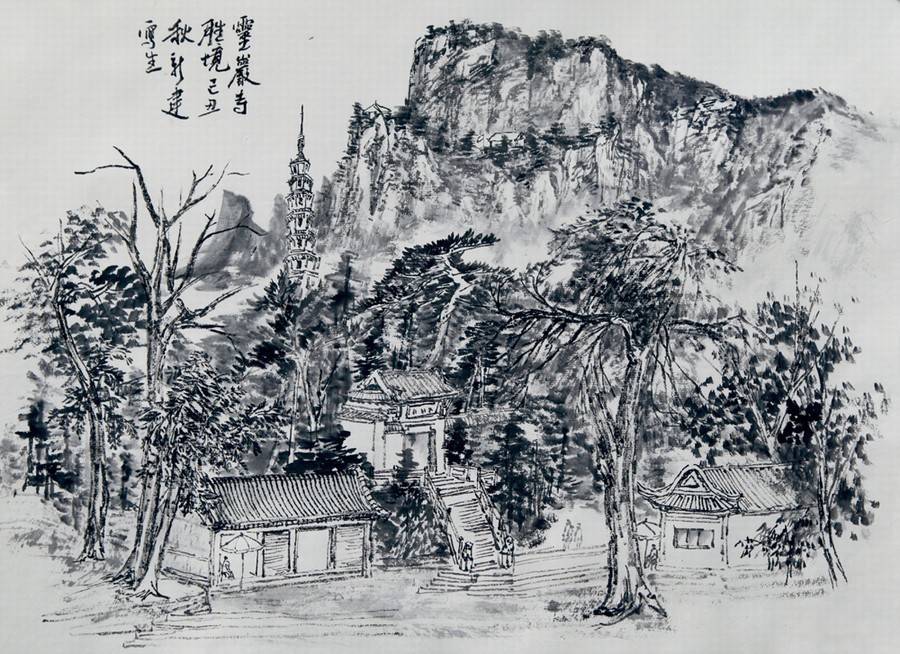 靈巖寺
勝境己丑
秋新建
寫生